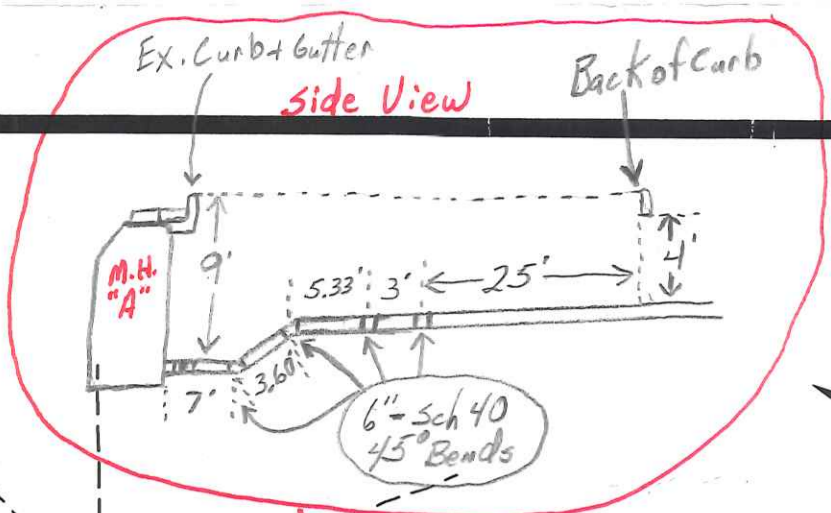 Ex. Curb + Gutter
Side View
Back of Curb
M.H.
"A"
9'
5.33'
3'
25'
4'
7'
3.60'
6"-Sch 40
45° Bends